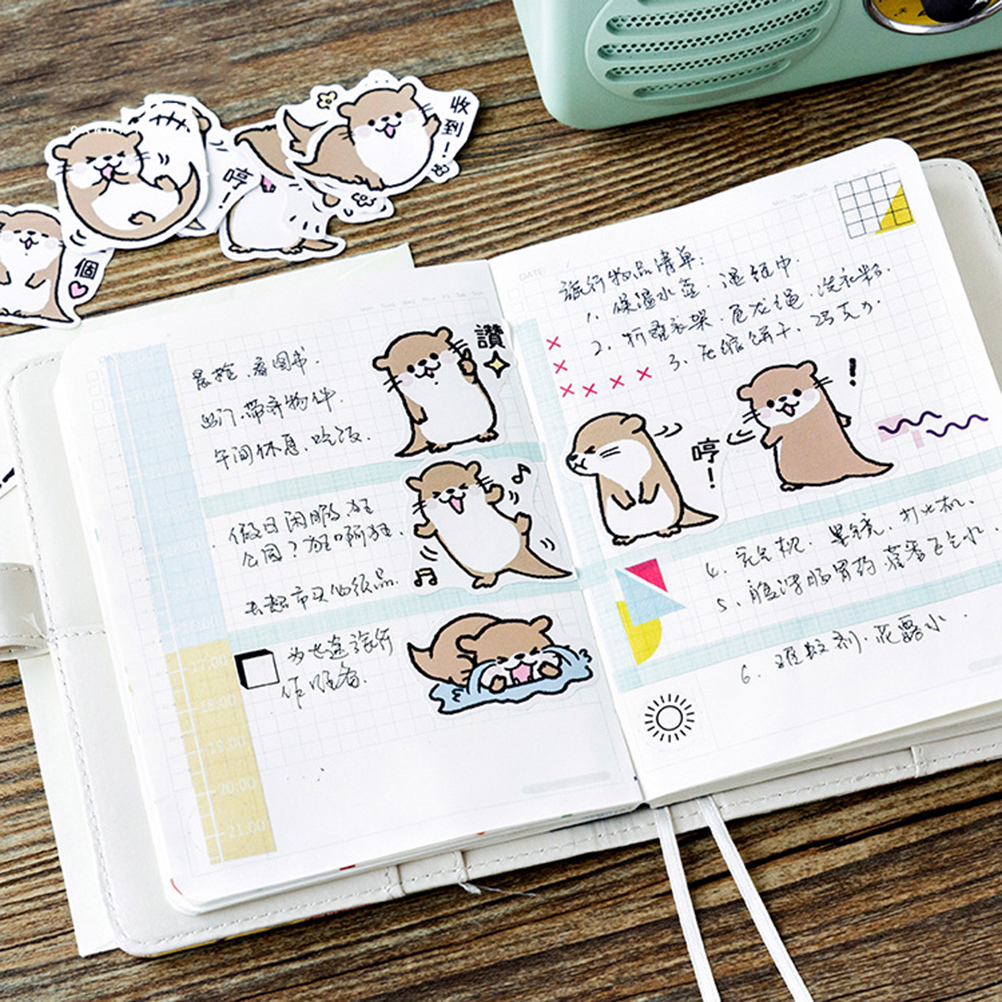 收到！
哼
個
晨检、看图书.
出门、带齐物件.
午间休息、吃饭.
讚
假日闲暇逛
公园？逛啊逛.
去超市买
为长途旅行
作准备.
17:00
18:00
19:00
20:00
21:00
DATE
旅行物品清单:
1、保温水壶、湿纸巾.
2、折叠衣架、尼龙绳、洗衣粉
3、压缩饼干、巧克力
哼！
！
4、充电机、墨镜、打火机、
5、腹泻肠胃药 藿香正气水
6、避蚊剂、花露水.